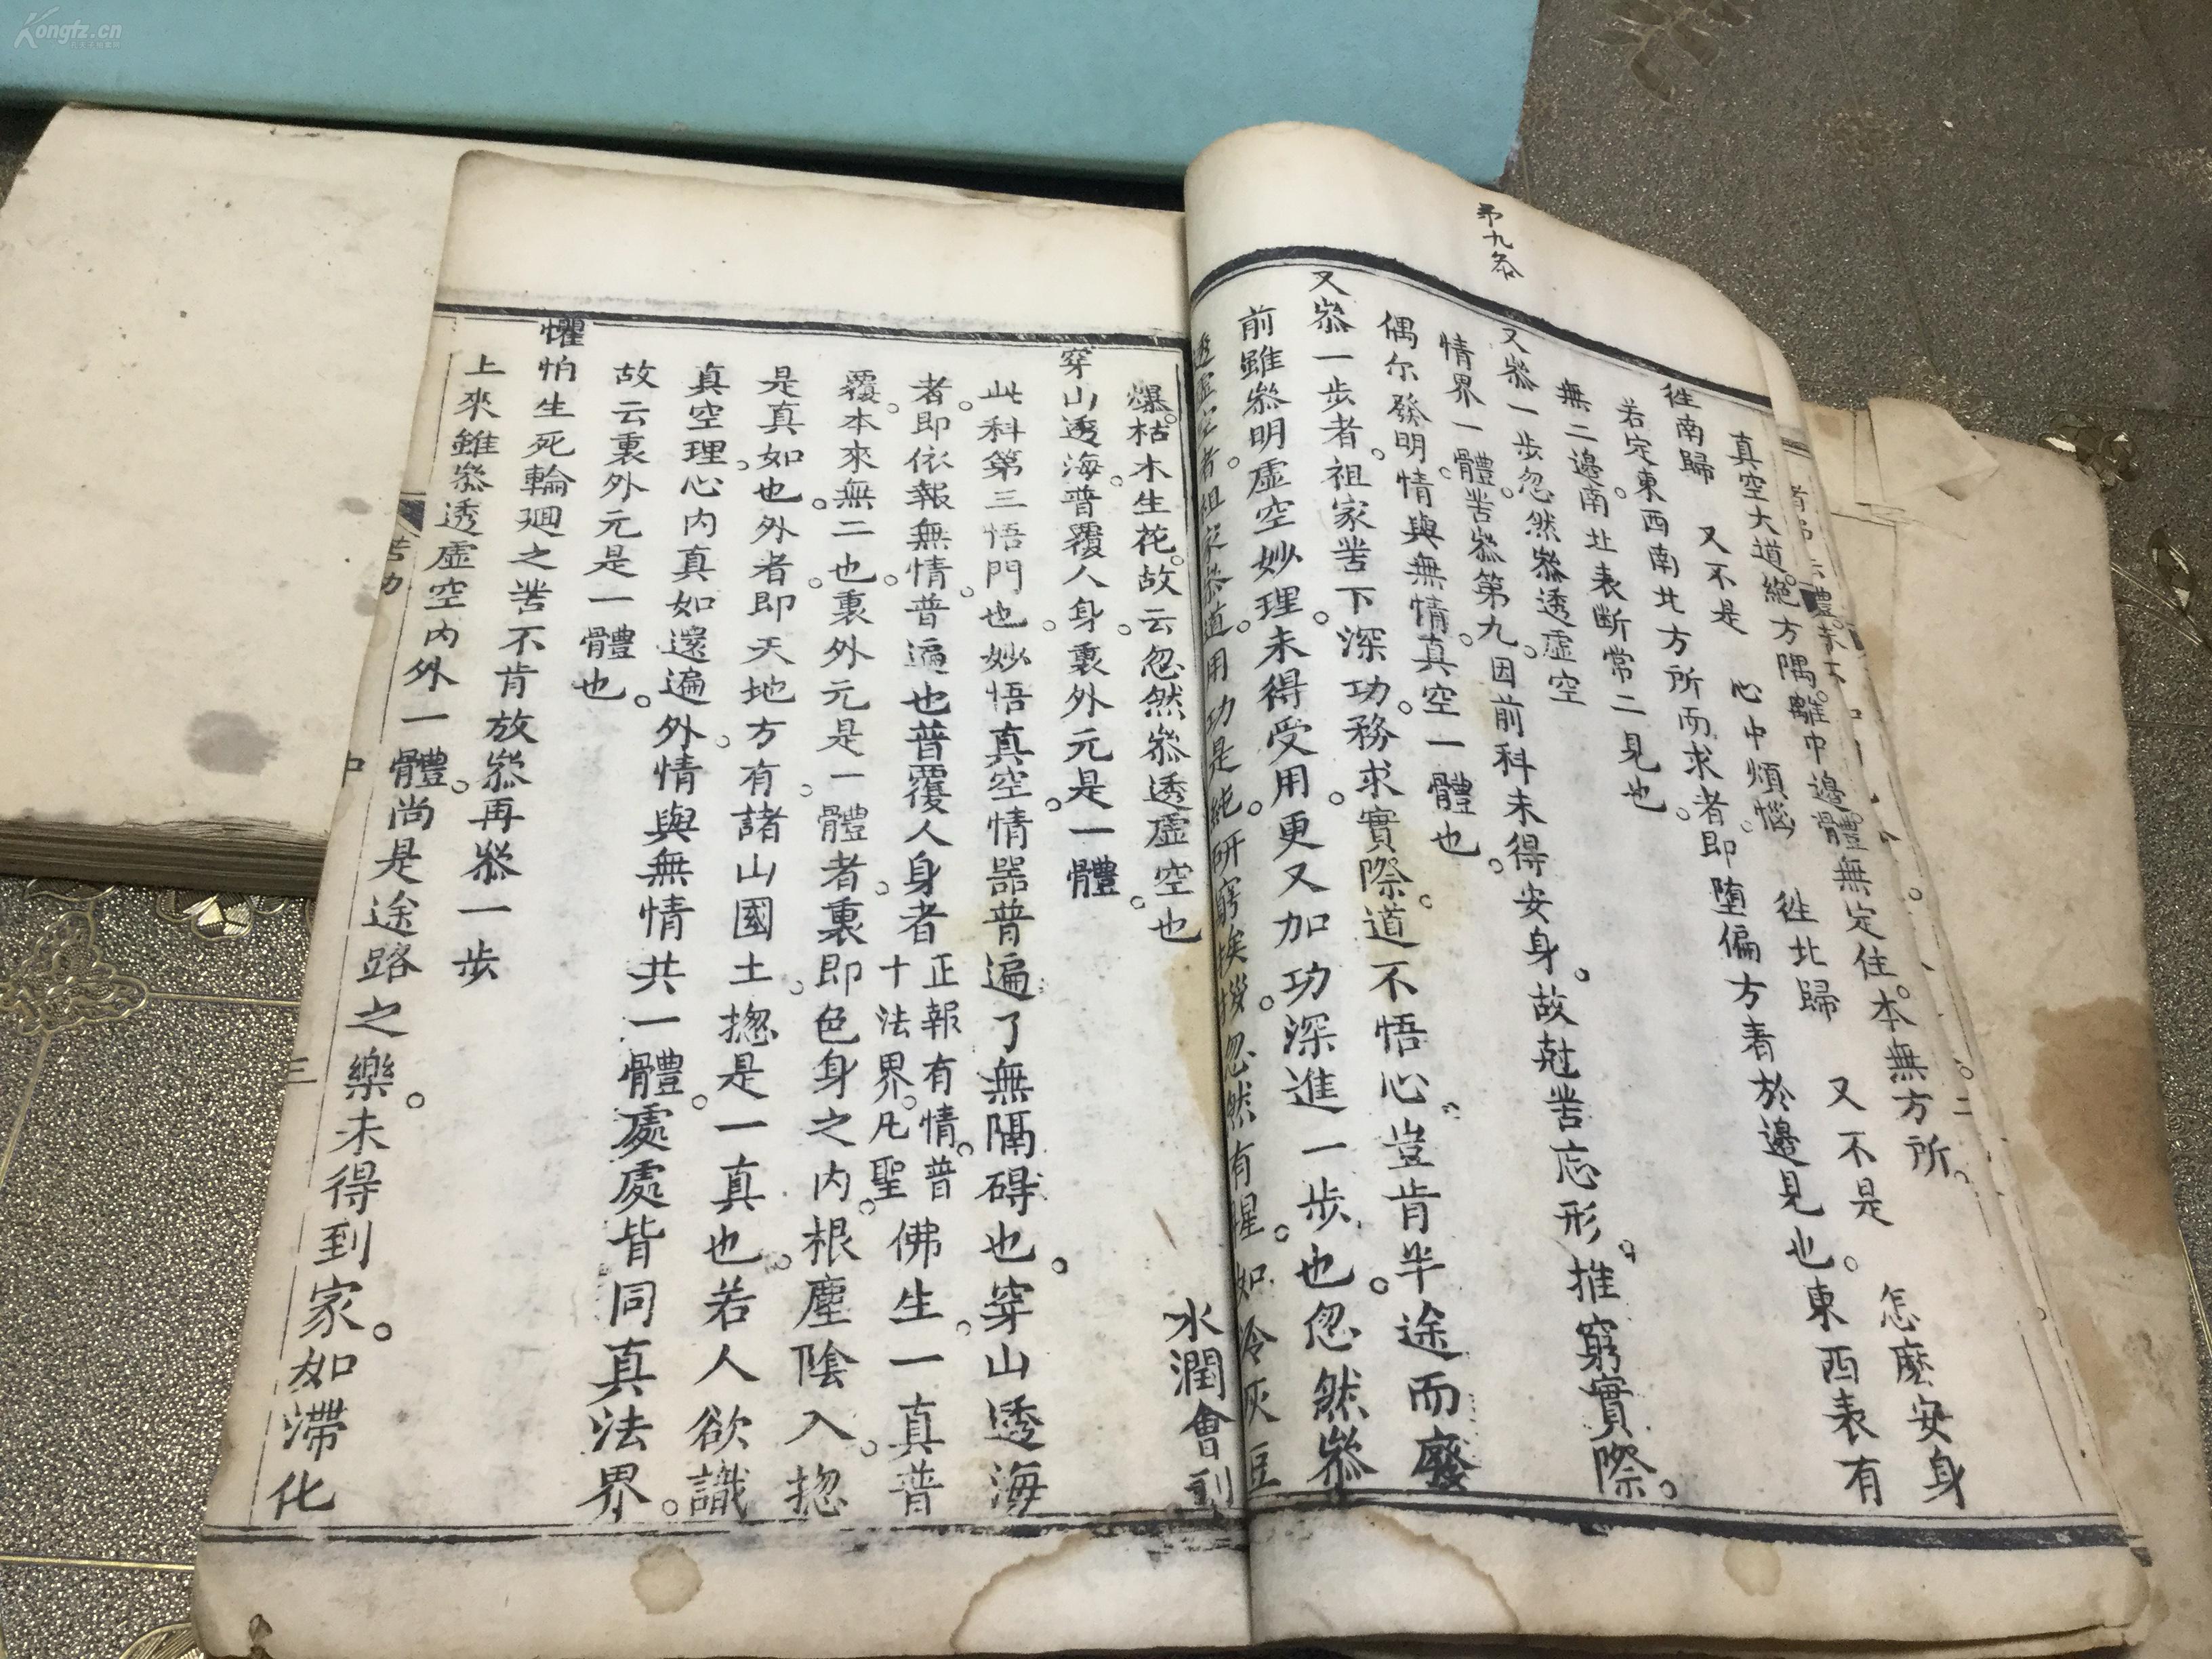 Kongfz.cn
苐九叅
真空大道。絕方隅。離中邊。體無定住。本無方所。
徃南歸　又不是　心中煩惱　徃北歸　又不是　怎麽安身
若定東西南北方所而求者。即堕偏方着於邊見也。東西表有
無二邊南北表斷常二見也
又叅一步忽然叅透虛空
情界一體。苦叅第九。因前科未得安身。故尅苦忘形。推窮實際。
偶尔發明。情與無情。真空一體也。
又叅一步者。祖家苦下深功。務求實際。道不悟心。豈肯半途而廢
前雖叅明虛空妙理。未得受用。更又加功深進一步也。忽然叅
透虛空者。祖家叅道。用功是純。研窮挨拶。忽然有省。如冷灰豆
爆。枯木生花。故云忽然叅透虛空也
水潤會刊
穿山透海。普覆人身。裏外元是一體。
此科第三悟門也。妙悟真空。情器普遍了無隔碍也。穿山透海
者。即依報無情。普遍也普覆人身者正報有情。普十法界。凡聖佛生。一真普
覆。本來無二也。裏外元是一體者。裏即色身之内。根塵陰入。揔
是真如也。外者。即天地方有諸山國土。揔是一真也。若人欲識
真空理。心内真如還遍外。情與無情共一體。處處皆同真法界。
故云裏外元是一體也。
懼怕生死輪廻之苦不肯放叅再叅一步
上來雖叅透虛空内外一體。尚是途路之樂。未得到家。如滯化
苦功
中
三